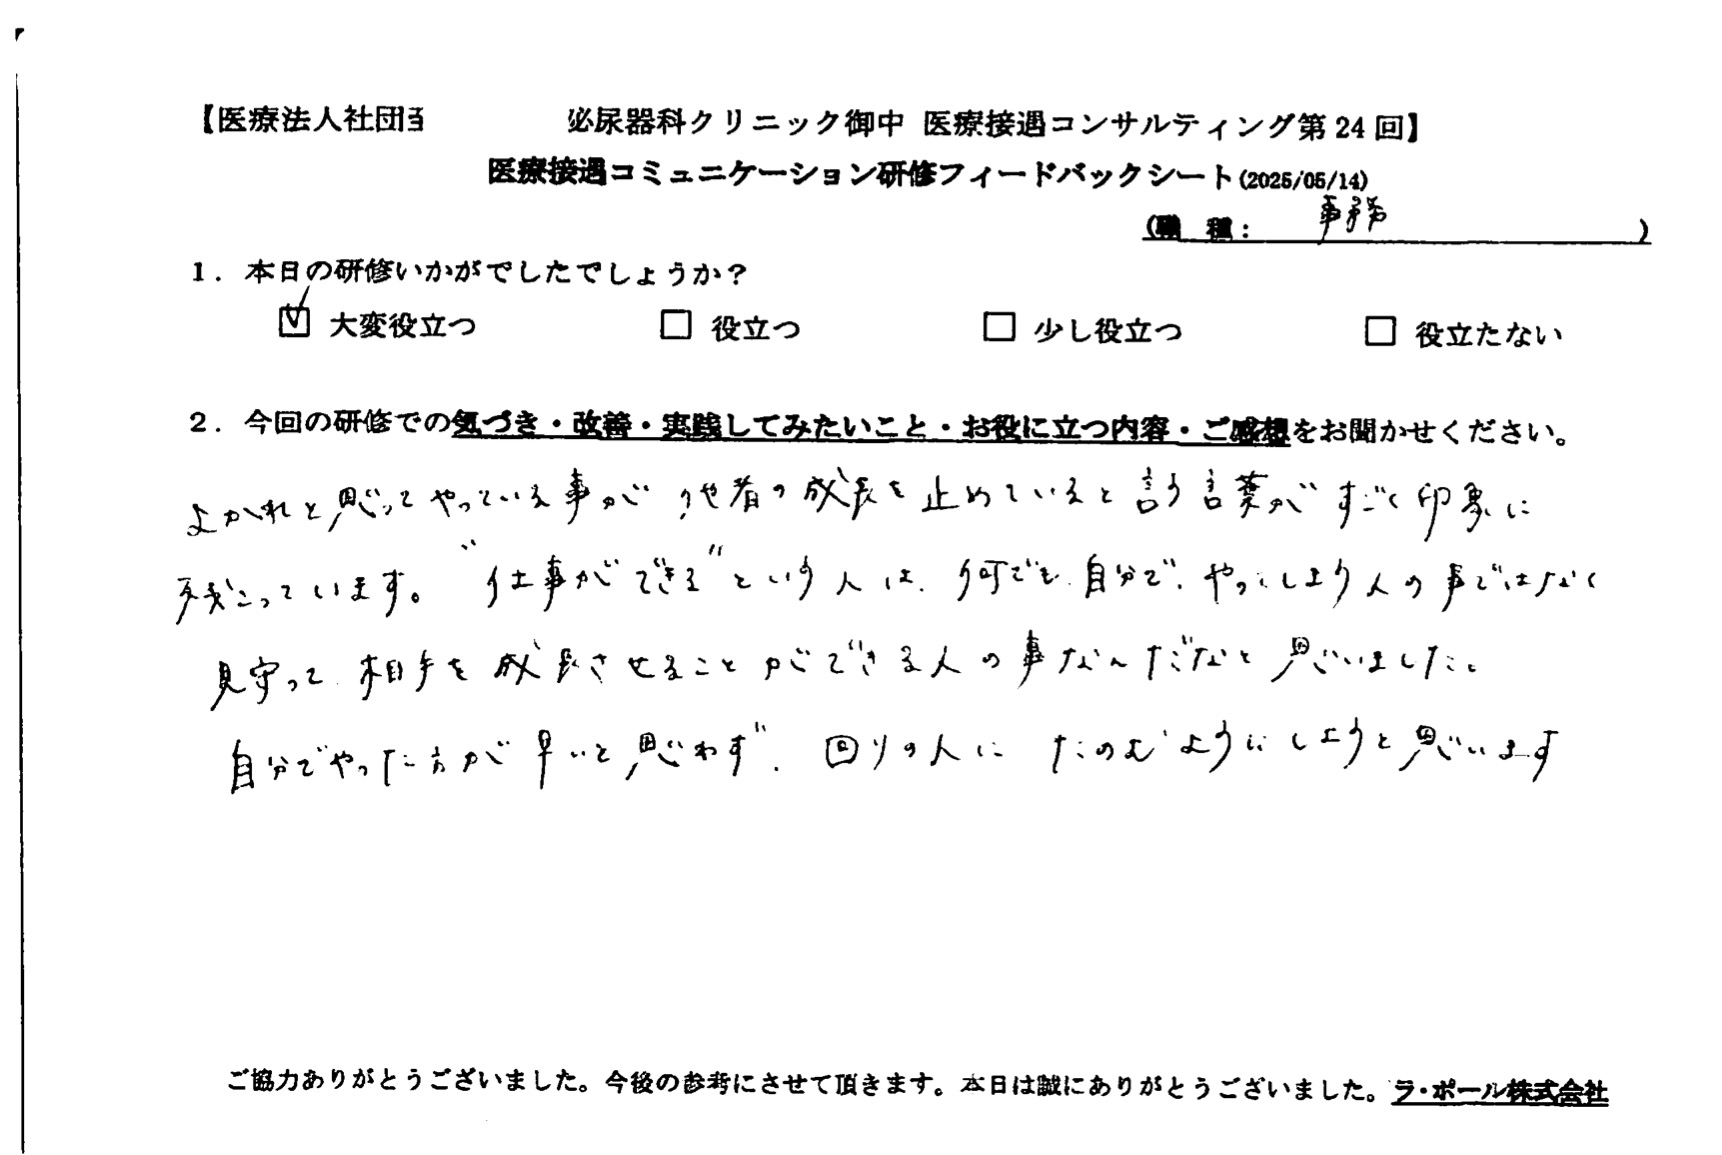 【医療法人社団 泌尿器科クリニック御中 医療接遇コンサルティング第24回】
医療接遇コミュニケーション研修フィードバックシート(2025/05/14)
(職 種: 事務 )
1. 本日の研修いかがでしたでしょうか?
☑ 大変役立つ □ 役立つ □ 少し役立つ □ 役立たない
2. 今回の研修での気づき・改善・実践してみたいこと・お役に立つ内容・ご感想をお聞かせください。
よかれと思ってやっている事が 他者の成長を止めていると言う言葉がすごく印象に
残こっています。"仕事ができる"という人は、何でも自分で、やってしまう人の事ではなく
見守って 相手を成長させることができる人の事なんだなと思いました。
自分でやった方が早いと思わず、回りの人に たのむようにしようと思います
ご協力ありがとうございました。今後の参考にさせて頂きます。本日は誠にありがとうございました。ラ・ポール株式会社